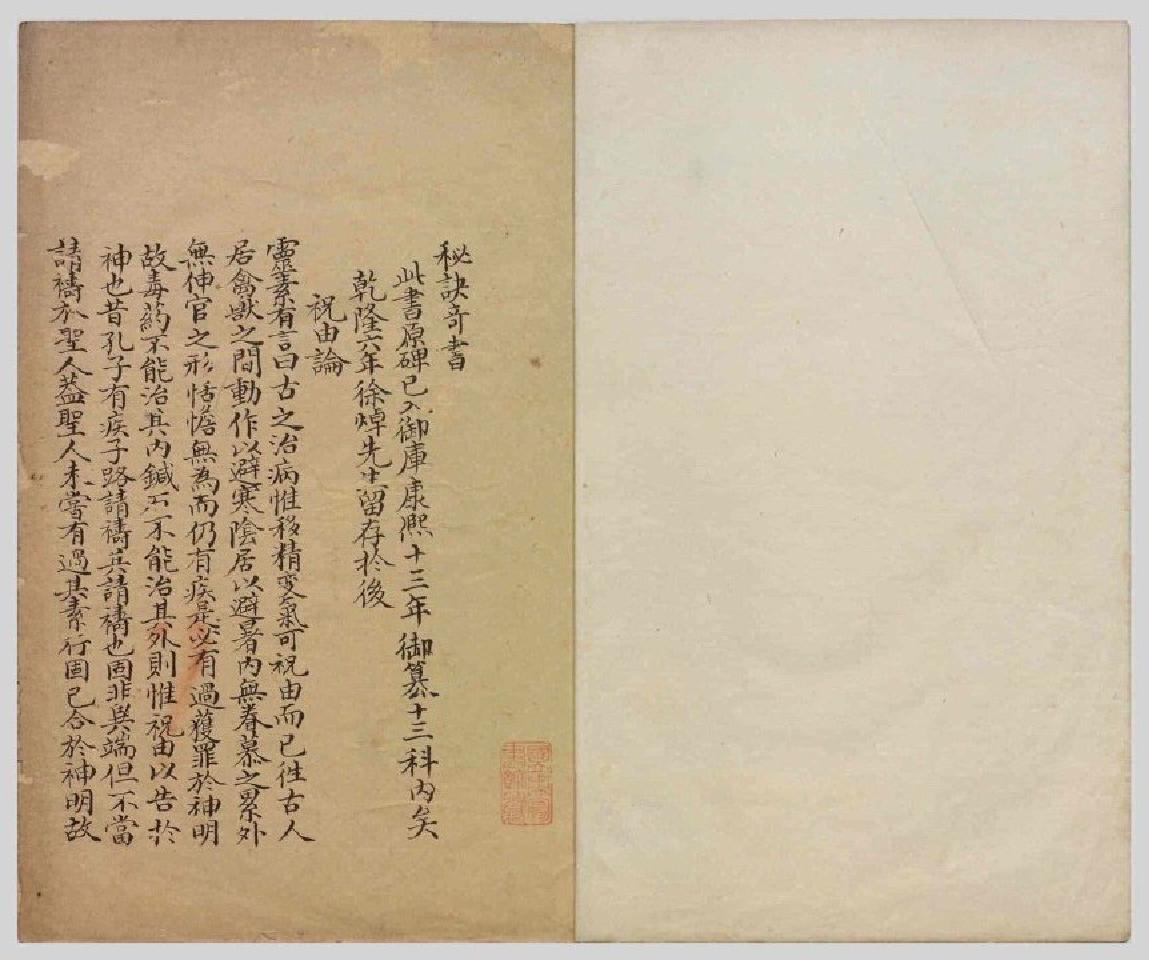 秘訣奇書
此書原碑已入御庫康熙十三年御纂十三科內矣
乾隆六年徐焯先生留存於後
祝由論
靈素有言曰古之治病惟移精変氣可祝由而已徃古人
居禽獸之間動作以避寒陰居以避暑內無眷慕之累外
無伸官之形恬憺無為而仍有疾是必有過獲罪於神明
故毒药不能治其內鍼石不能治其外則惟祝由以告於
神也昔孔子有疾子路請禱其請禱也固非異端但不當
請禱於聖人葢聖人未嘗有過其素行固已合於神明故